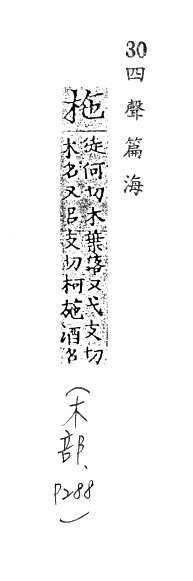 30 四聲篇海
柂
徒何切木葉落又弋支切
木名又吕支切柯柂酒名
(木部、P288)